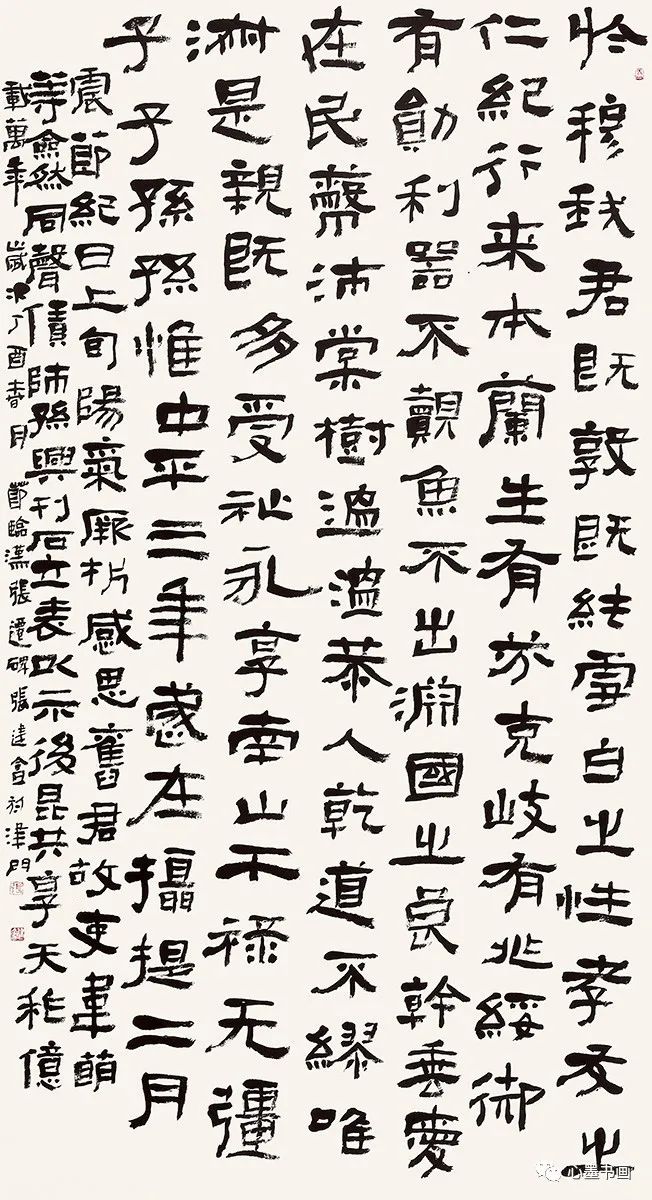 於穆我君既敦既純雪白之性孝友之
仁紀行来本蘭生有芬克岐有兆綏御
有勛利器不覿魚不出淵國之良幹垂愛
在民蔽沛棠樹温温恭人乾道不繆唯
淑是親既多受祉永享南山干禄无疆
子子孫孫惟中平三年歲在攝提二月
震節紀日上旬陽氣厥析感思舊君故吏韋萌
等僉然同聲賃師孫興刊石立表以示後昆共享天祚億
載萬年 歲次丁酉春月 節臨漢張遷碑 張建會於津門
心墨书画